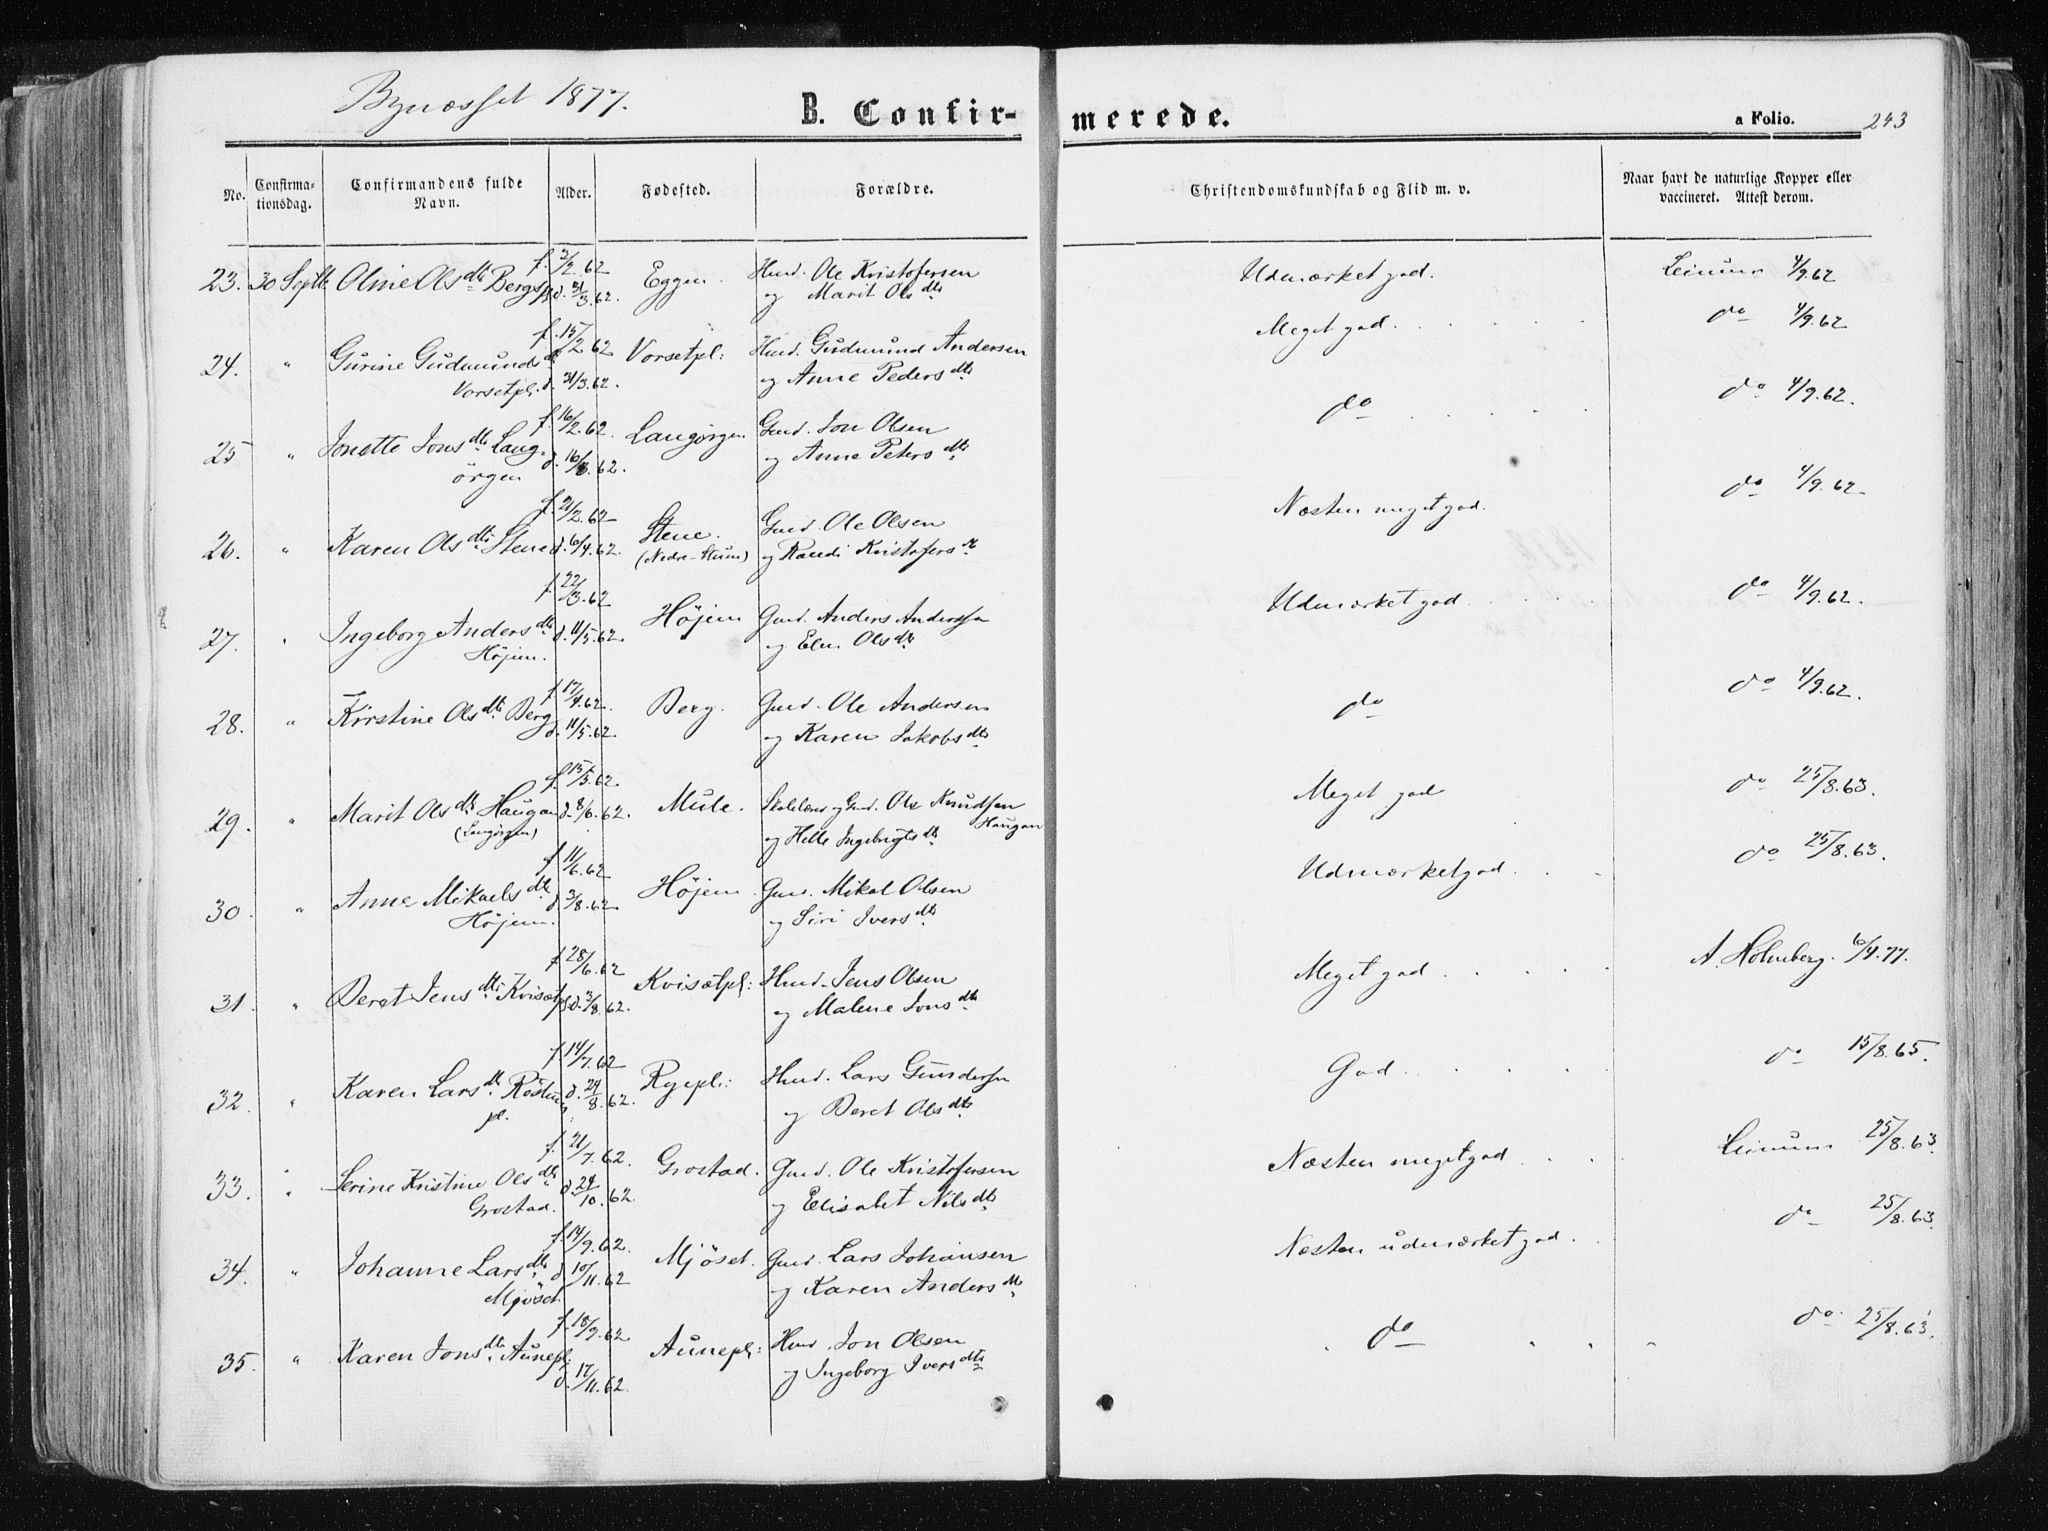 Bynæsset 1877.
B. Confirmerede.
a Folio. 243
No. Confirmationsdag. Confirmandens fulde Navn. Alder. Fødested. Forældre. Christendomskundskab og Flid m. v. Naar havt de naturlige Kopper eller vaccineret. Attest derom.
f. 3/2.62
23. 30 Septb Oline Olsdtr Bergspl d. 31/3.62. Eggen Husd. Ole Kristofersen Udmærket god. Leinum 4/9.62
og Marit Olsdtr
f. 15/2 62
24. " Gurine Gudmundsdtr Vorsetpl: Husd. Gudmund Andersen Meget god do 4/9.62
Vorsetpl. d. 31/3.62. og Anne Pedersdtr
f. 16/2.62.
25 " Jonette Jonsdtr Lang- Langørgen Gmd. Jon Olsen do do 4/9.62.
ørgen d. 16/3.62. og Anne Petersdtr
f. 21/2.62
26. " Karen Olsdtr Stene d. 6/4.62. Stene. Gmd. Ole Olsen Næsten meget god. do 4/9.62
(Nedre-Stuen) og Randi Kristofersdtr
f. 22/3.62
27. " Ingeborg Andersdtr d. 11/5.62. Højem Gmd. Anders Anderssen Udmærket god do 4/9.62.
Højem. og Elen Olsdtr
f. 17/4.62.
28. " Kirstine Olsdtr Berg d. 11/5.62. Berg. Gmd. Ole Andersen do do 4/9.62.
og Karen Jakobsdtr
f. 15/5.62.
29. " Marit Olsdtr Haugan d. 8/6.62. Mule. Skolelærer og Gmd. Ole Knudsen Haugan Meget god do 25/8.63.
(Langørgen) og Helle Ingebrigtsdtr
f. 11/6.62
30. " Anne Mikaelsdtr d. 3/8.62 Højem Gmd. Mikal Olsen Udmærket god. do 25/8.63.
Højem. og Siri Iversdtr
f. 28/6.62
31. " Beret Jensdtr Kvisetpl d. 3/8.62. Kvisetpl: Husd. Jens Olsen Meget god A. Holmberg. 6/4.77.
og Malene Jonsdtr
f. 14/7.62
32. " Karen Larsdtr Røstum d. 24/8.62. Ryepl: Husd. Lars Gundersen God do 15/8.65.
pl. og Beret Olsdtr
f. 21/7.62.
33. " Serine Kristine Olsdtr d. 24/10.62. Grostad. Gmd. Ole Kristofersen Næsten meget god Leinum 25/8.63
Grostad. og Elisabet Nilsdtr
f. 14/9.62.
34. " Johanne Larsdtr d. 10/11.62 Mjøset. Gmd. Lars Johansen Næsten udmærket god. do 25/8.63.
Mjøset. og Karen Andersdtr
f. 18/9.62
35. " Karen Jonsdtr Aunepl: d. 17/11.62. Aunepl: Husd. Jon Olsen do do 25/8.63.
og Ingeborg Iversdtr